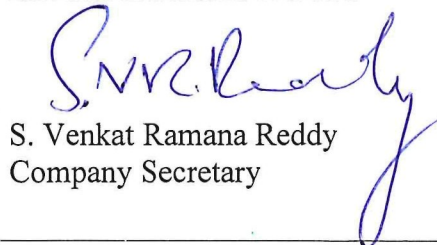 S.V.R.Reddy
S. Venkat Ramana Reddy
Company Secretary